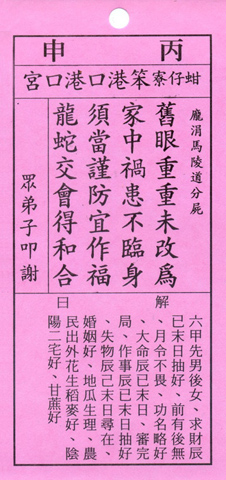 丙申
蚶仔寮笨港口港口宮
龐涓馬陵道分屍
舊眼重重未改為
家中禍患不臨身
須當謹防宜作福
龍蛇交會得和合
眾弟子叩謝
解曰
六甲先男後女、求財辰
已末日抽好、前有後無
、月令不畏、功名略好
、大命辰已末日、審完
局、作事辰已末日抽好
、失物辰已末日尋在、
婚姻好、地瓜生理、農
民出外花生稻麥好、陰
陽二宅好、甘蔗好